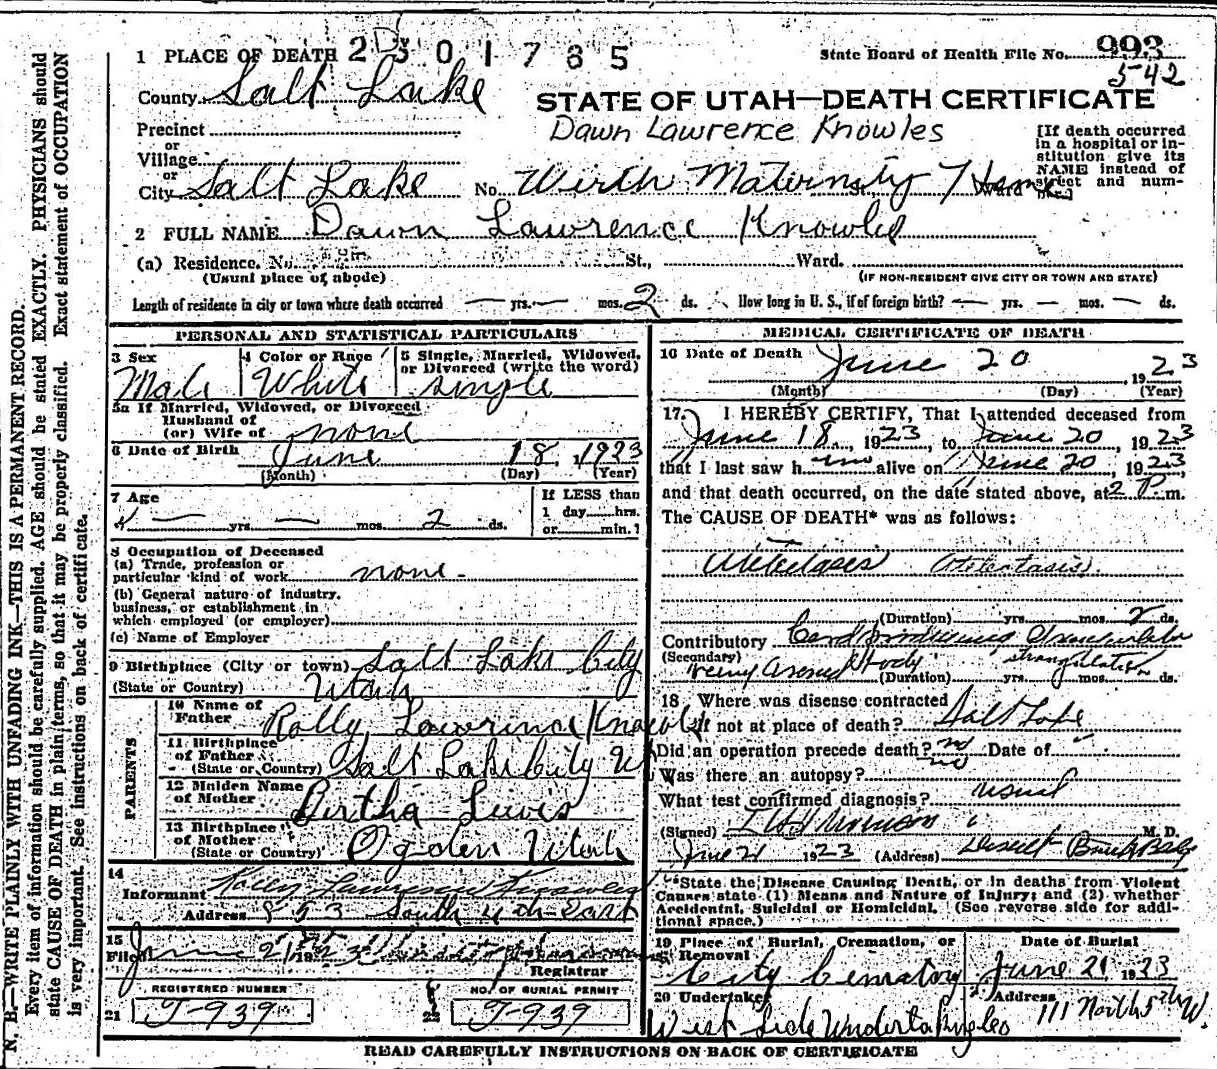 1 PLACE OF DEATH 2301785
State Board of Health File No. 993
542
County Salt Lake
STATE OF UTAH—DEATH CERTIFICATE
Precinct
Dawn Lawrence Knowles
[If death occurred in a hospital or institution give its NAME instead of street and number.]
or
Village
or
City Salt Lake No. Wirth Maternity Home Ward
2 FULL NAME Dawn Lawrence Knowles
(a) Residence. No. St., Ward.
(Usual place of abode) (IF NON-RESIDENT GIVE CITY OR TOWN AND STATE)
Length of residence in city or town where death occurred — yrs. — mos. 2 ds. How long in U. S., if of foreign birth? — yrs. — mos. — ds.
PERSONAL AND STATISTICAL PARTICULARS
3 Sex 4 Color or Race 5 Single, Married, Widowed, or Divorced (write the word)
Male White single
5a If Married, Widowed, or Divorced
Husband of
(or) Wife of none
6 Date of Birth June 18, 1923
(Month) (Day) (Year)
7 Age If LESS than
— yrs. — mos. 2 ds. 1 day hrs.
or min.?
8 Occupation of Deceased
(a) Trade, profession or
particular kind of work none
(b) General nature of industry,
business, or establishment in
which employed (or employer)
(c) Name of Employer
9 Birthplace (City or town) Salt Lake City
(State or Country) Utah
PARENTS
10 Name of Father Rolly Lawrence Knowles
11 Birthplace of Father
(State or Country) Salt Lake City U
12 Maiden Name of Mother Bertha Lewis
13 Birthplace of Mother
(State or Country) Ogden Utah
14
Informant Rolly Lawrence Knowles
Address 853 South 4th East
15
Filed June 21 1923
Registrar
REGISTERED NUMBER NO. OF BURIAL PERMIT
21 J-939 22 J-939
MEDICAL CERTIFICATE OF DEATH
16 Date of Death June 20 1923
(Month) (Day) (Year)
17. I HEREBY CERTIFY, That I attended deceased from
June 18, 1923, to June 20, 1923
that I last saw him alive on June 20, 1923
and that death occurred, on the date stated above, at 2 P.m.
The CAUSE OF DEATH* was as follows:
Atelectasis (Atelectasis)
(Duration) yrs. mos. 2 ds.
Contributory Cord
(Secondary) body strangulation
(Duration) yrs. mos. ds.
18 Where was disease contracted
if not at place of death? Salt Lake
Did an operation precede death? no Date of
Was there an autopsy? no
What test confirmed diagnosis? usual
(Signed) M. D.
June 21 1923 (Address) Deseret Bank Bldg
*State the Disease Causing Death, or in deaths from Violent
Causes state (1) Means and Nature of Injury; and (2) whether
Accidental, Suicidal or Homicidal. (See reverse side for additional space.)
19 Place of Burial, Cremation, or Removal Date of Burial
City Cemetery June 21 1923
20 Undertaker Address
West Side Undertaking Co 111 North 5th W.
READ CAREFULLY INSTRUCTIONS ON BACK OF CERTIFICATE
N. B.—WRITE PLAINLY WITH UNFADING INK—THIS IS A PERMANENT RECORD.
Every item of information should be carefully supplied. AGE should be stated EXACTLY. PHYSICIANS should
state CAUSE OF DEATH in plain terms, so that it may be properly classified. Exact statement of OCCUPATION
is very important. See instructions on back of certificate.